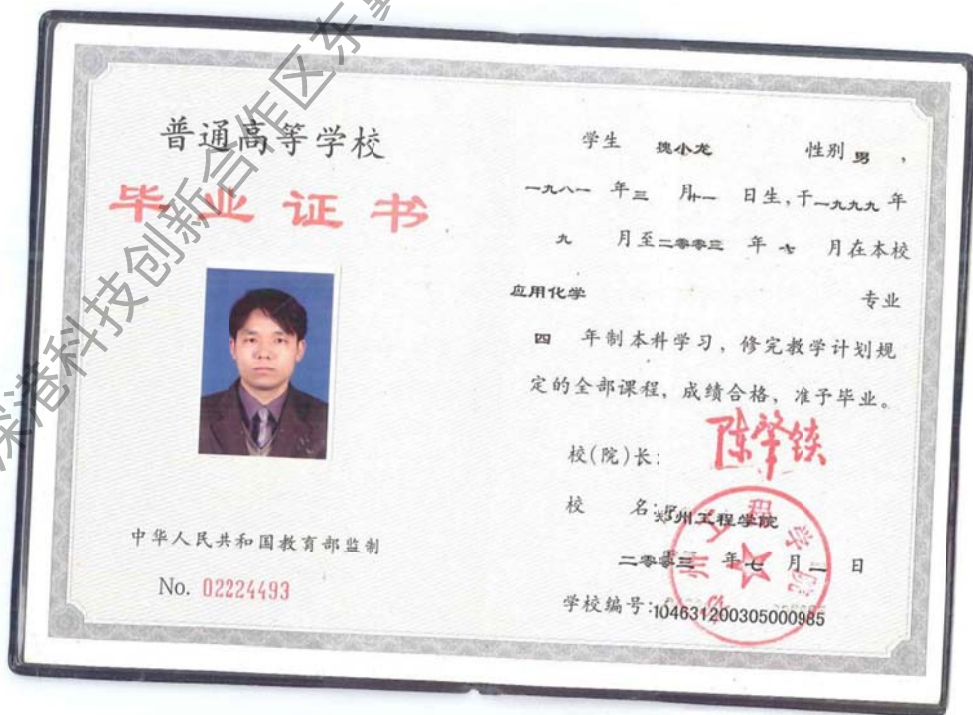 深港科技创新合作区东
普通高等学校
毕业证书
中华人民共和国教育部监制
No. 02224493
学生 槐小龙 性别 男 ，
一九八一 年 三 月 十一 日生，于 一九九九 年
九 月至 二零零三 年 七 月在本校
应用化学 专业
四 年制本科学习，修完教学计划规
定的全部课程，成绩合格，准予毕业。
校(院)长：
校 名：郑州工程学院
二零零三 年 七 月 一 日
学校编号：104631200305000985